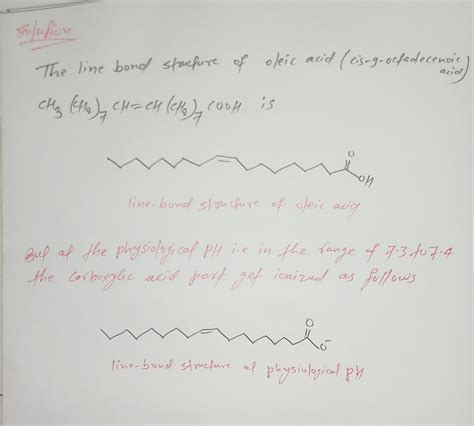 Solution
The line bond structure of oleic acid (cis-9-octadecenoic acid)
CH3 (CH2)7 CH=CH (CH2)7 COOH is
O
OH
line-bond structure of oleic acid
But at the physiological pH i.e in the range of 7.3 to 7.4
the carboxylic acid part get ionized as follows
O
O-
line-bond structure at physiological pH